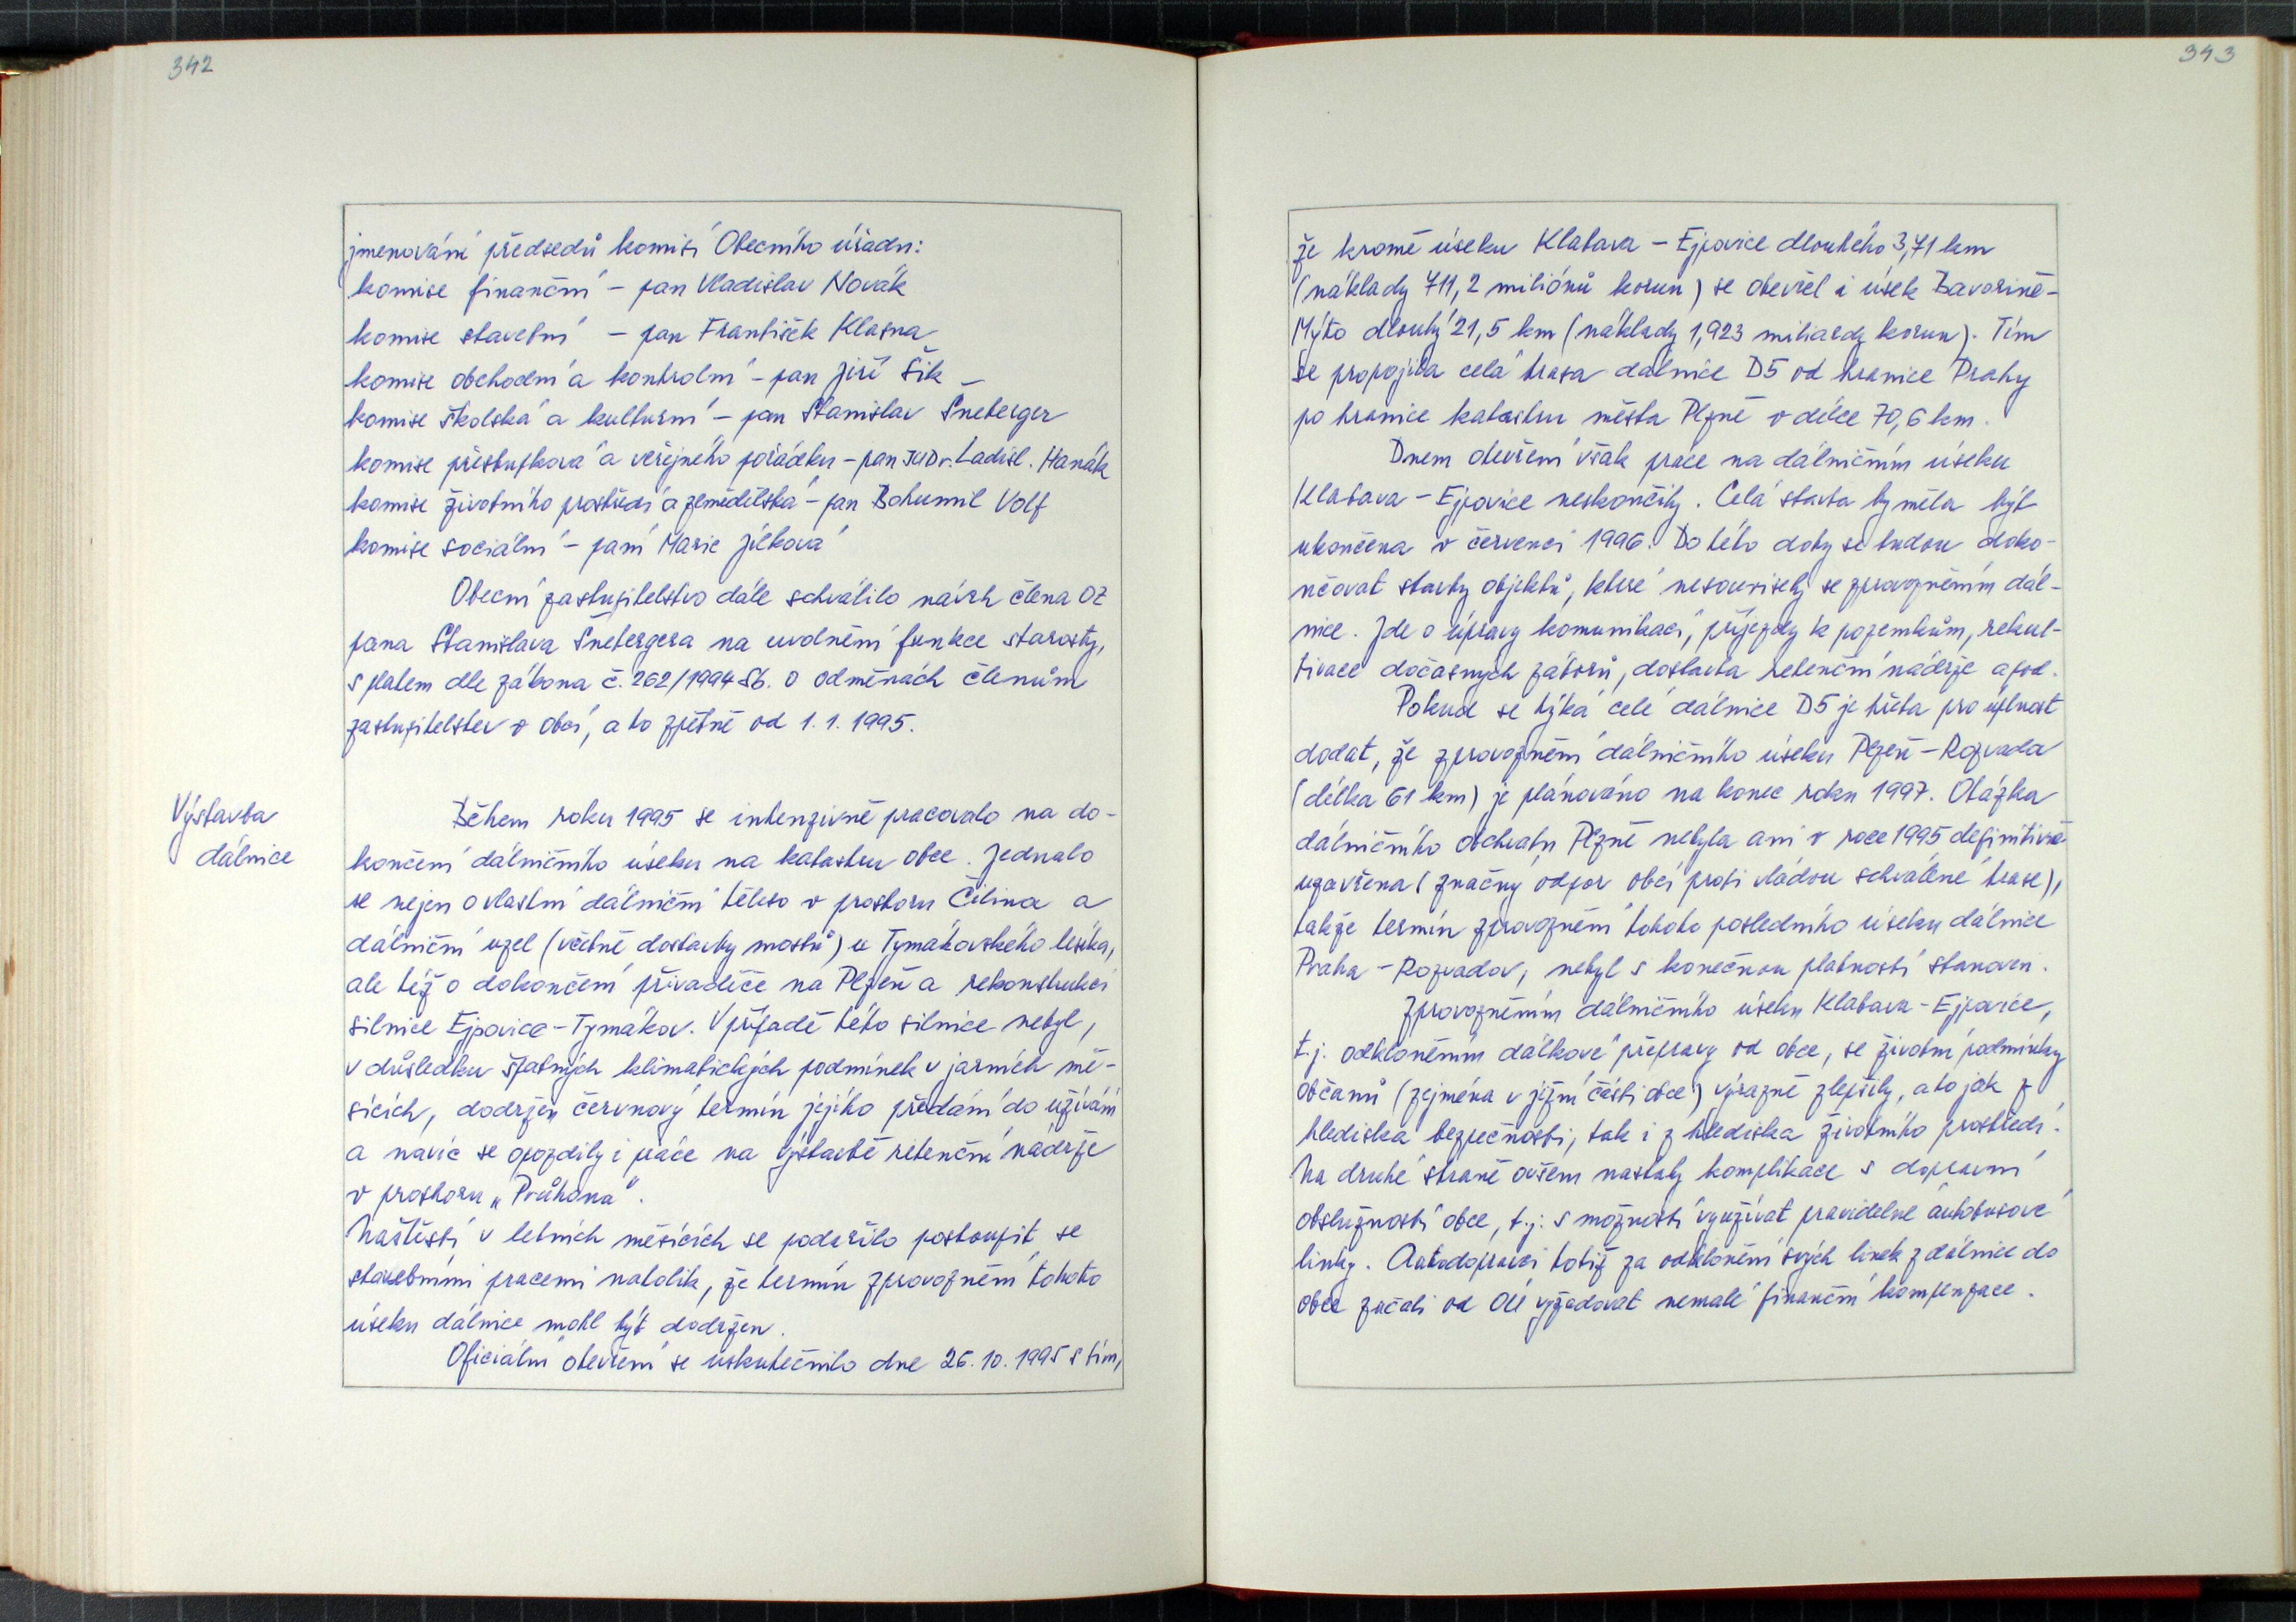 342
jmenování předsedů komisí Obecního úřadu:
komise finanční – pan Vladislav Novák
komise stavební – pan František Klasna
komise obchodní a kontrolní – pan Jiří Šik
komise školská a kulturní – pan Stanislav Šneberger
komise přestupková a veřejného pořádku – pan JUDr. Ladisl. Hanák
komise životního prostředí a zemědělská – pan Bohumil Volf
komise sociální – paní Marie Jílková
Obecní zastupitelstvo dále schválilo návrh člena OZ
pana Stanislava Šnebergera na uvolnění funkce starosty,
s platem dle zákona č. 262/1994 Sb. o odměnách členům
zastupitelstev v obcí, a to zpětně od 1. 1. 1995.
Výstavba
dálnice
Během roku 1995 se intenzivně pracovalo na do-
končení dálničního úseku na katastru obce. Jednalo
se nejen o vlastní dálniční těleso v prostoru Čilina a
dálniční uzel (včetně dostavby mostů) u Tymákovského lesíka,
ale též o dokončení přivaděče na Plzeň a rekonstrukci
silnice Ejpovice – Tymákov. V případě této silnice nebyl,
v důsledku špatných klimatických podmínek v jarních mě-
sících, dodržen červnový termín jejího předání do užívání
a navíc se opozdily i práce na výstavbě retenční nádrže
v prostoru „Průhona".
Naštěstí v letních měsících se podařilo postoupit se
stavebními pracemi natolik, že termín zprovoznění tohoto
úseku dálnice mohl být dodržen.
Oficiální otevření se uskutečnilo dne 26. 10. 1995 s tím,
343
že kromě úseku Klabava – Ejpovice dlouhého 3,71 km
(náklady 711,2 miliónů korun) se otevřel i úsek Bavorině-
Mýto dlouhý 21,5 km (náklady 1,923 miliardy korun). Tím
se propojila celá trasa dálnice D5 od hranice Prahy
po hranice katastru města Plzně v délce 70,6 km.
Dnem otevření však práce na dálničním úseku
Klabava – Ejpovice neskončily. Celá stavba by měla být
ukončena v červenci 1996. Do této doby se budou doko-
nčovat stavby objektů, které nesouvisely se zprovozněním dál-
nice. Jde o úpravy komunikací, příjezdy k pozemkům, rekul-
tivace dočasných záborů, dostavba retenční nádrže apod.
Pokud se týká celé dálnice D5 je třeba pro úplnost
dodat, že zprovoznění dálničního úseku Plzeň – Rozvada
(délka 61 km) je plánováno na konec roku 1997. Otázka
dálničního obchvatu Plzně nebyla ani v roce 1995 definitivně
uzavřena (značný odpor obcí proti vládou schválené trase),
takže termín zprovoznění tohoto posledního úseku dálnice
Praha – Rozvadov, nebyl s konečnou platností stanoven.
Zprovozněním dálničního úseku Klabava – Ejpovice,
t.j. odkloněním dálkové přepravy od obce, se životní podmínky
občanů (zejména v jižní části obce) výrazně zlepšily, a to jak z
hlediska bezpečnosti, tak i z hlediska životního prostředí.
Na druhé straně ovšem nastaly komplikace s dopravní
obslužností obce, t.j. s možností využívat pravidelné autobusové
linky. Autodopravci totiž za odklonění svých linek z dálnice do
obce začali od OÚ vyžadovat nemalé finanční kompenzace.